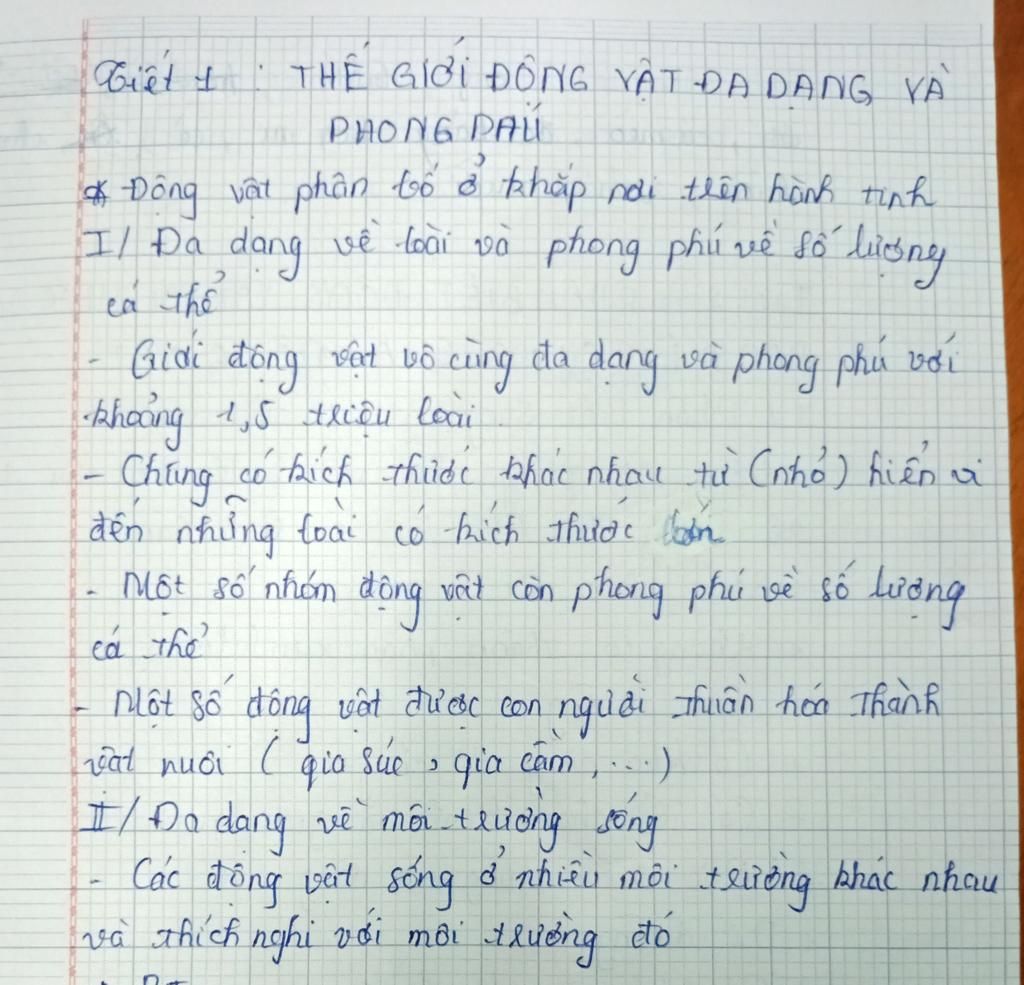 Tiết 1 : THẾ GIỚI ĐỘNG VẬT ĐA DẠNG VÀ
PHONG PHÚ
* Động vật phân bố ở khắp nơi trên hành tinh
I/ Đa dạng về loài và phong phú về số lượng
cá thể
- Giới động vật vô cùng đa dạng và phong phú với
khoảng 1,5 triệu loài
- Chúng có kích thước khác nhau từ (nhỏ) hiển vi
đến những loài có kích thước lớn
- Một số nhóm động vật còn phong phú về số lượng
cá thể
- Một số động vật được con người thuần hóa thành
vật nuôi ( gia súc , gia cầm , ...)
II/ Đa dạng về môi trường sống
- Các động vật sống ở nhiều môi trường khác nhau
và thích nghi với môi trường đó